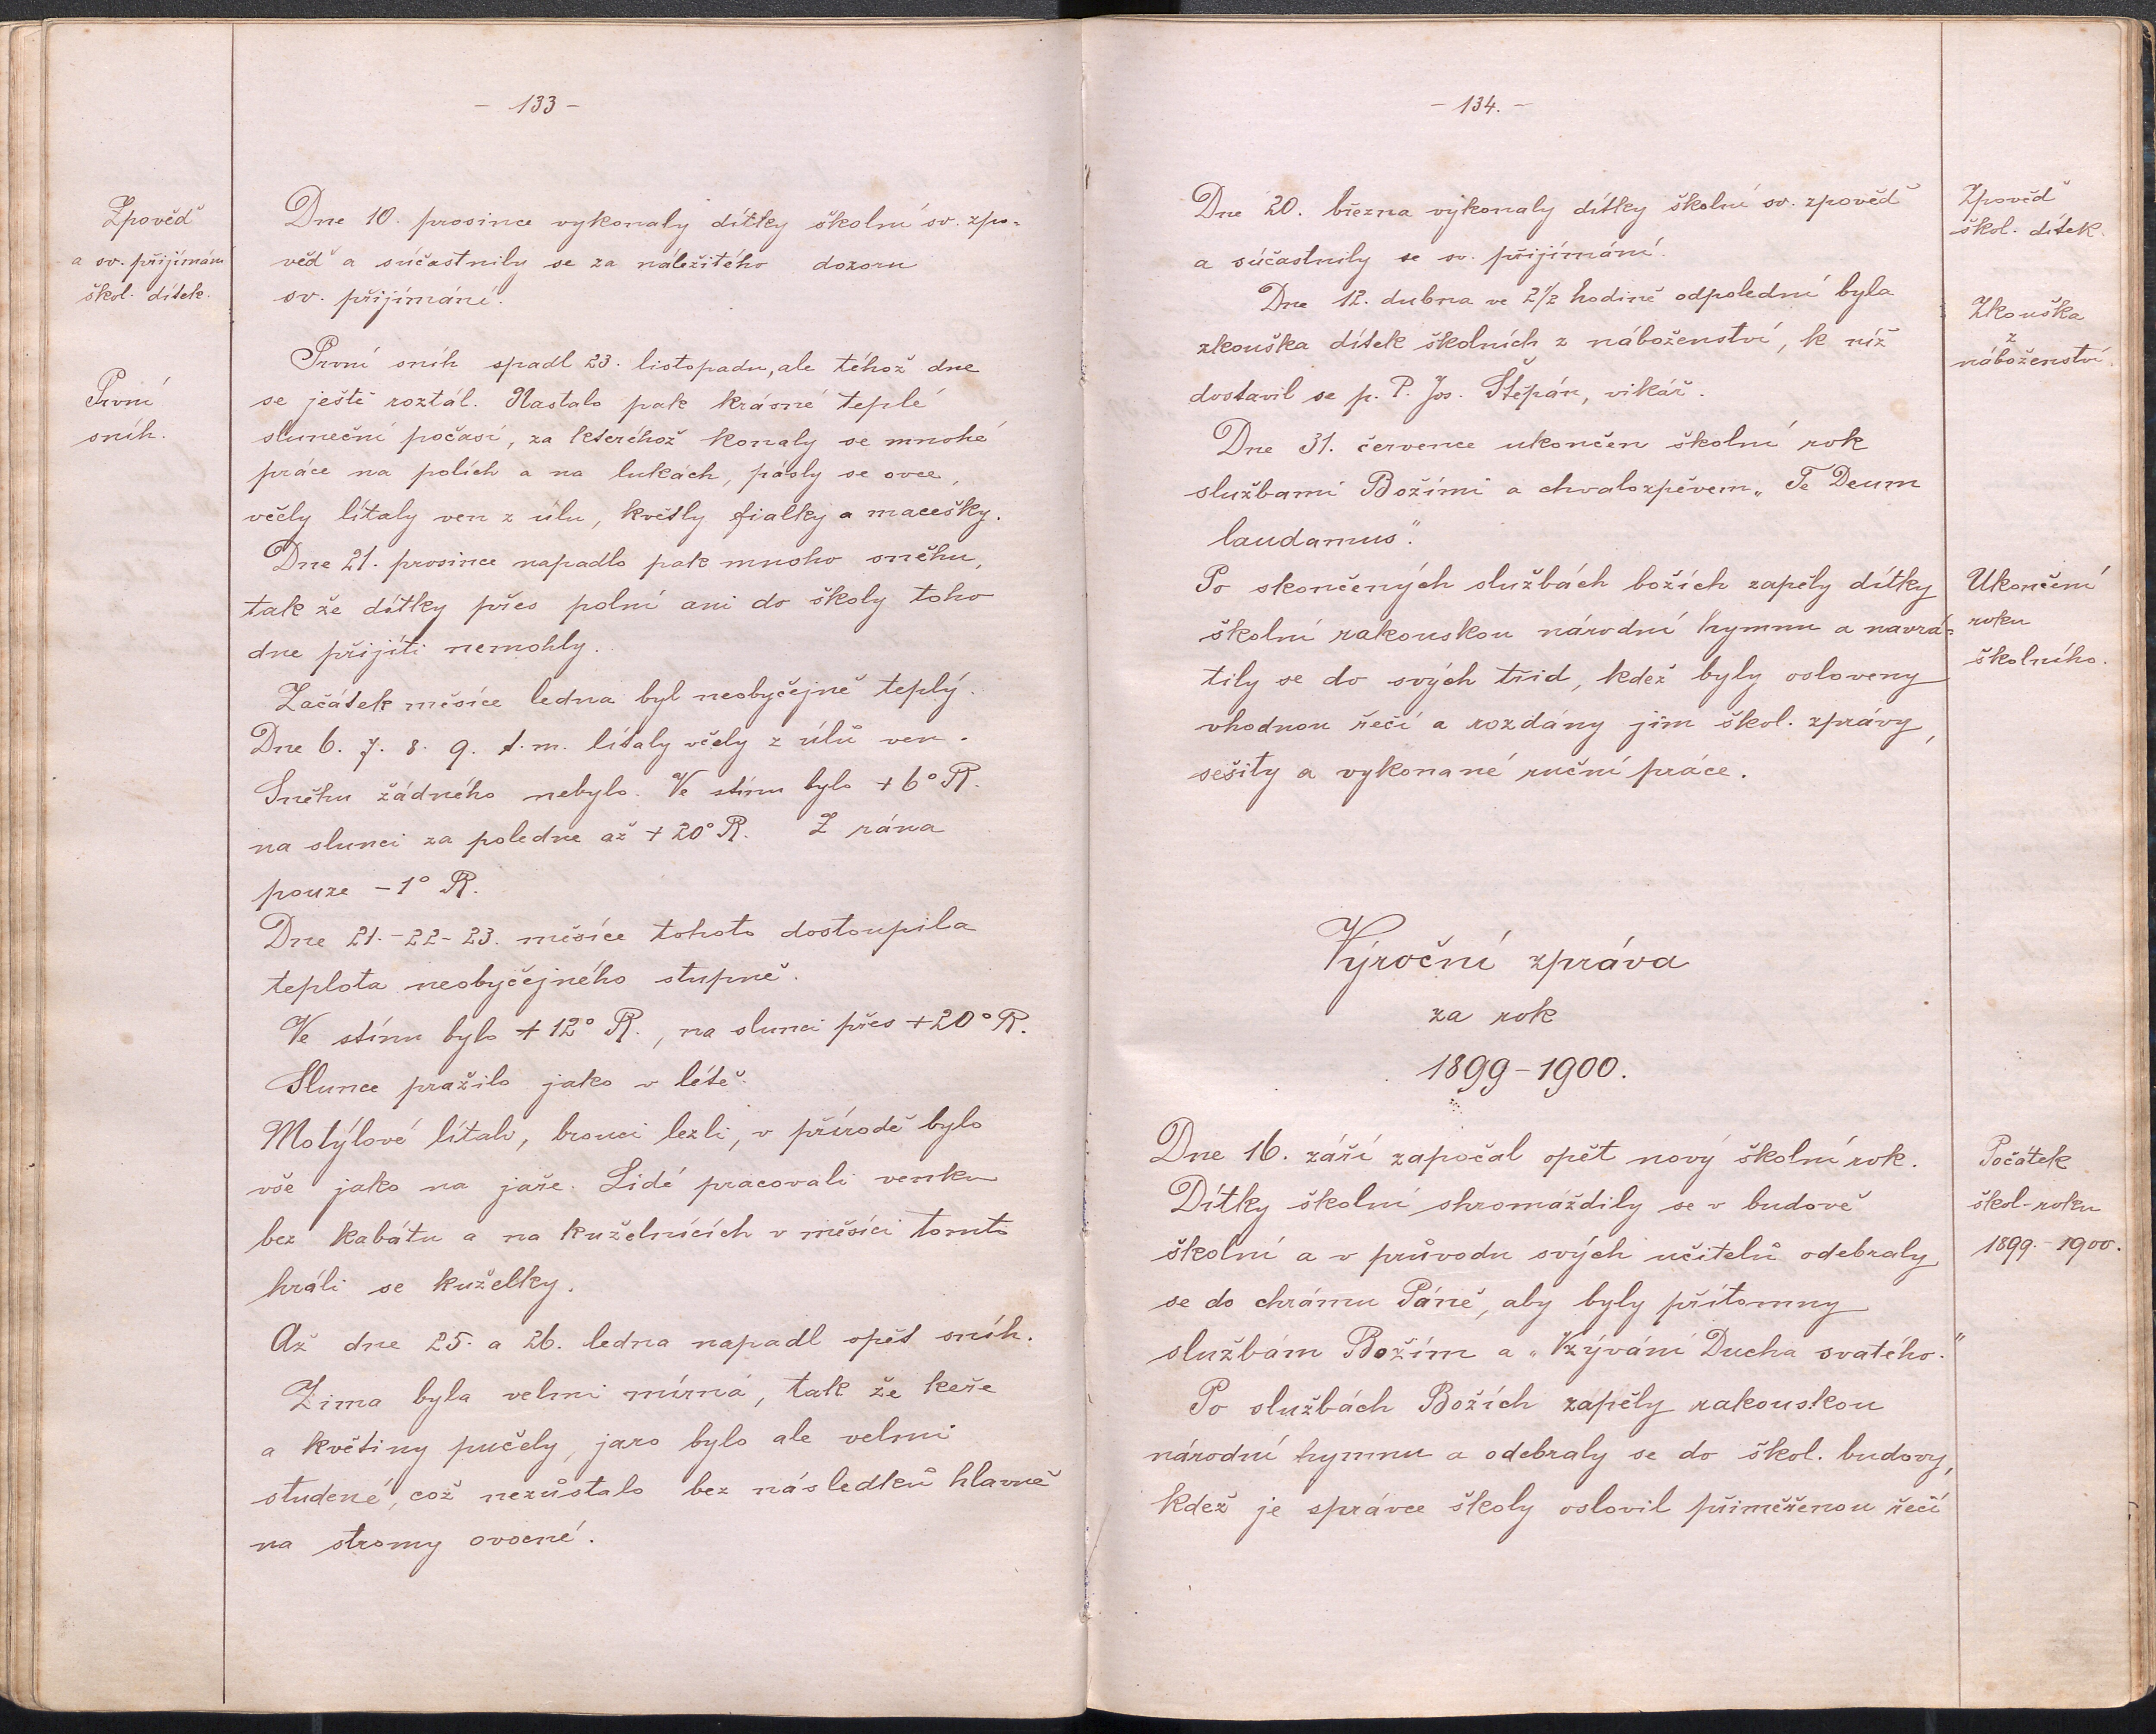 - 133 -
Zpověď
a sv. přijímání
škol. dítek.
Dne 10. prosince vykonaly dítky školní sv. zpo-
věď a súčastnily se za náležitého dozoru
sv. přijímání.
První
sníh.
První sníh spadl 23. listopadu, ale téhož dne
se ještě roztál. Nastalo pak krásné teplé
sluneční počasí, za kteréhož konaly se mnohé
práce na polích a na lukách, pásly se ovce,
včely lítaly ven z úlu, květly fialky a macešky.
Dne 21. prosince napadlo pak mnoho sněhu,
tak že dítky přes polní ani do školy toho
dne přijíti nemohly.
Začátek měsíce ledna byl neobyčejně teplý.
Dne 6. 7. 8. 9. t. m. lítaly včely z úlů ven.
Sněhu žádného nebylo. Ve stínu bylo + 6° R.
na slunci za poledne až + 20° R. Z rána
pouze - 1° R.
Dne 21. - 22 - 23. měsíce tohoto dostoupila
teplota neobyčejného stupně.
Ve stínu bylo + 12° R., na slunci přes + 20° R.
Slunce pražilo jako v létě.
Motýlové lítali, brouci lezli, v přírodě bylo
vše jako na jaře. Lidé pracovali venku
bez kabátu a na kuželnících v měsíci tomto
hráli se kuželky.
Až dne 25. a 26. ledna napadl opět sníh.
Zima byla velmi mírná, tak že keře
a květiny pučely, jaro bylo ale velmi
studené, což nezůstalo bez následků hlavně
na stromy ovocné.
- 134. -
Dne 20. března vykonaly dítky školní sv. zpověď
a súčastnily se sv. přijímání.
Zpověď
škol. dítek.
Dne 12. dubna ve 2 1/2 hodině odpolední byla
zkouška dítek školních z náboženství, k níž
dostavil se p. P. Jos. Štěpán, vikář.
Zkouška
z
náboženství.
Dne 31. července ukončen školní rok
službami Božími a chvalozpěvem „Te Deum
laudamus“.
Po skončených službách božích zapěly dítky
školní rakouskou národní hymnu a navrá-
tily se do svých tříd, kdež byly osloveny
vhodnou řečí a rozdány jim škol. zprávy,
sešity a vykonané ruční práce.
Ukončení
roku
školního.
Výroční zpráva
za rok
1899 - 1900.
Dne 16. září započal opět nový školní rok.
Dítky školní shromáždily se v budově
školní a v průvodu svých učitelů odebraly
se do chrámu Páně, aby byly přítomny
službám Božím a „Vzývání Ducha svatého.“
Po službách Božích zapěly rakouskou
národní hymnu a odebraly se do škol. budovy,
kdež je správce školy oslovil přiměřenou řečí
Počátek
škol. roku
1899. - 1900.